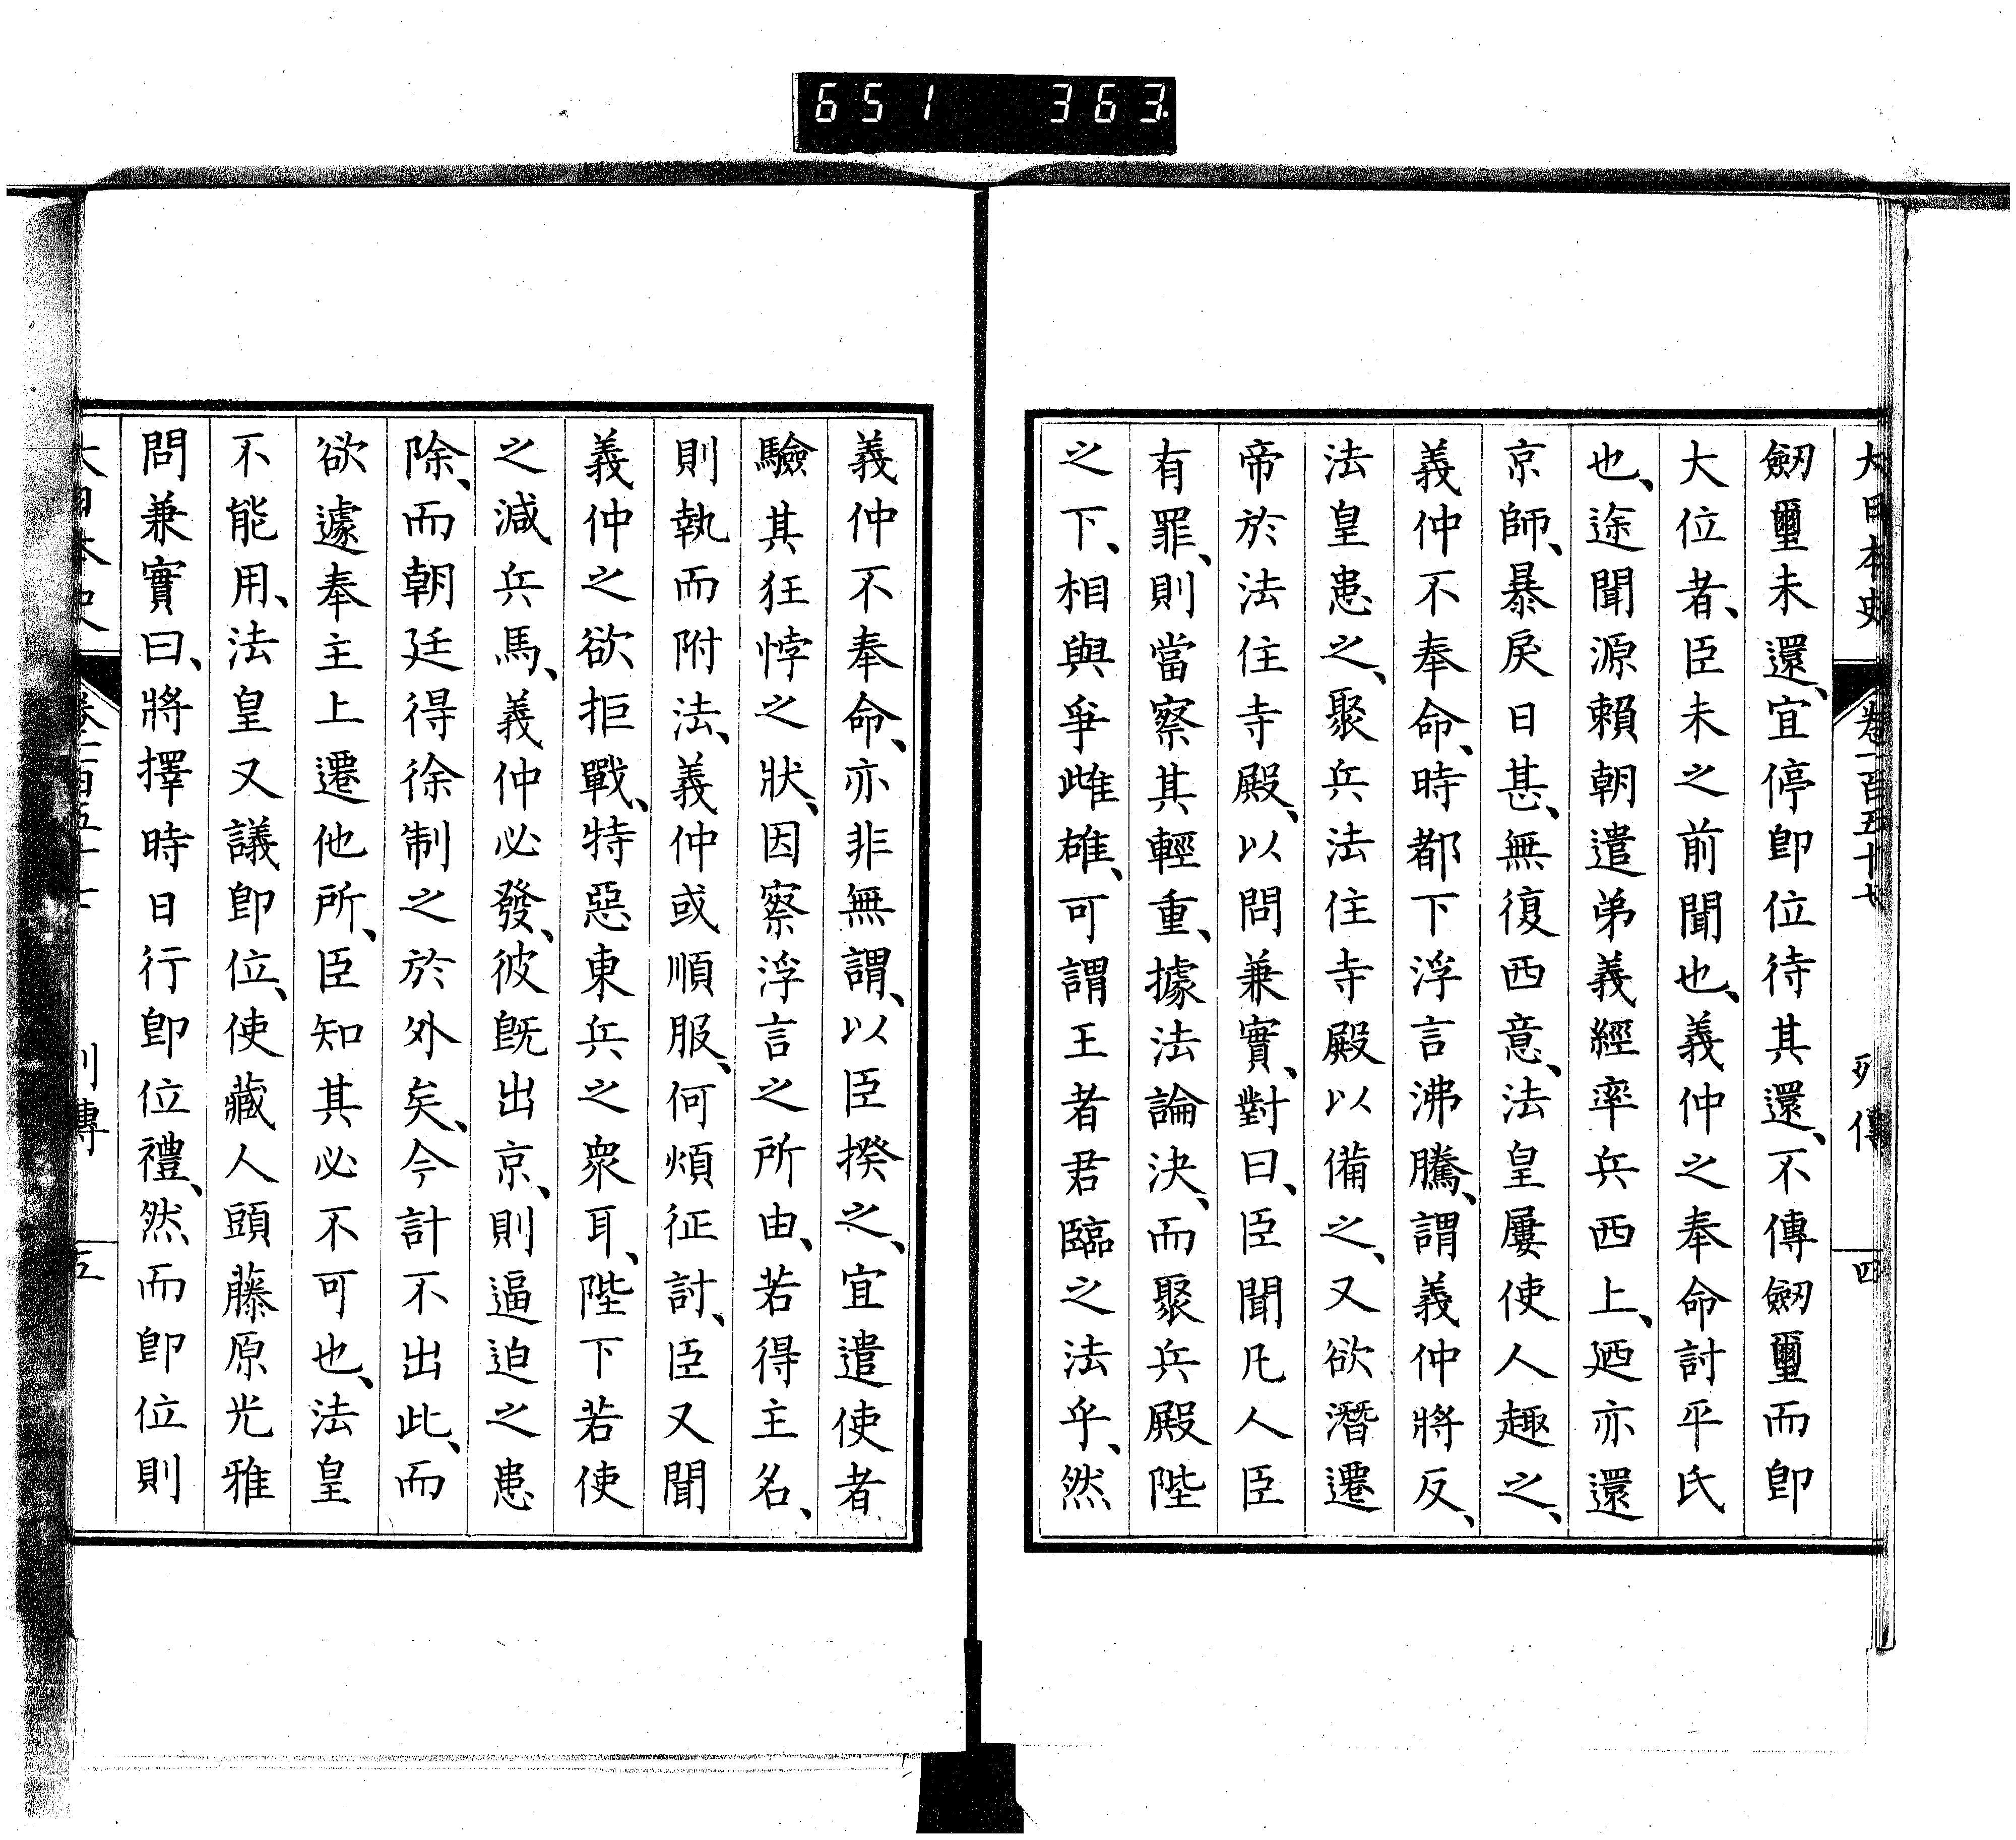 651 363.
大日本史 卷一百五十七 列傳 四
劒璽未還、宜停卽位待其還、不傳劒璽而卽
大位者、臣未之前聞也、義仲之奉命討平氏
也、途聞源賴朝遣弟義經率兵西上、廼亦還
京師、暴戾日甚、無復西意、法皇屢使人趣之、
義仲不奉命、時都下浮言沸騰、謂義仲將反、
法皇患之、聚兵法住寺殿以備之、又欲潛遷
帝於法住寺殿、以問兼實、對曰、臣聞凡人臣
有罪、則當察其輕重、據法論決、而聚兵殿陛
之下、相與爭雌雄、可謂王者君臨之法乎、然
義仲不奉命、亦非無謂、以臣揆之、宜遣使者
驗其狂悖之狀、因察浮言之所由、若得主名、
則執而附法、義仲或順服、何煩征討、臣又聞
義仲之欲拒戰、特惡東兵之衆耳、陛下若使
之減兵馬、義仲必發、彼旣出京、則逼迫之患
除、而朝廷得徐制之於外矣、今計不出此、而
欲遽奉主上遷他所、臣知其必不可也、法皇
不能用、法皇又議卽位、使藏人頭藤原光雅
問兼實曰、將擇時日行卽位禮、然而卽位則
大日本史 卷一百五十七 列傳 五